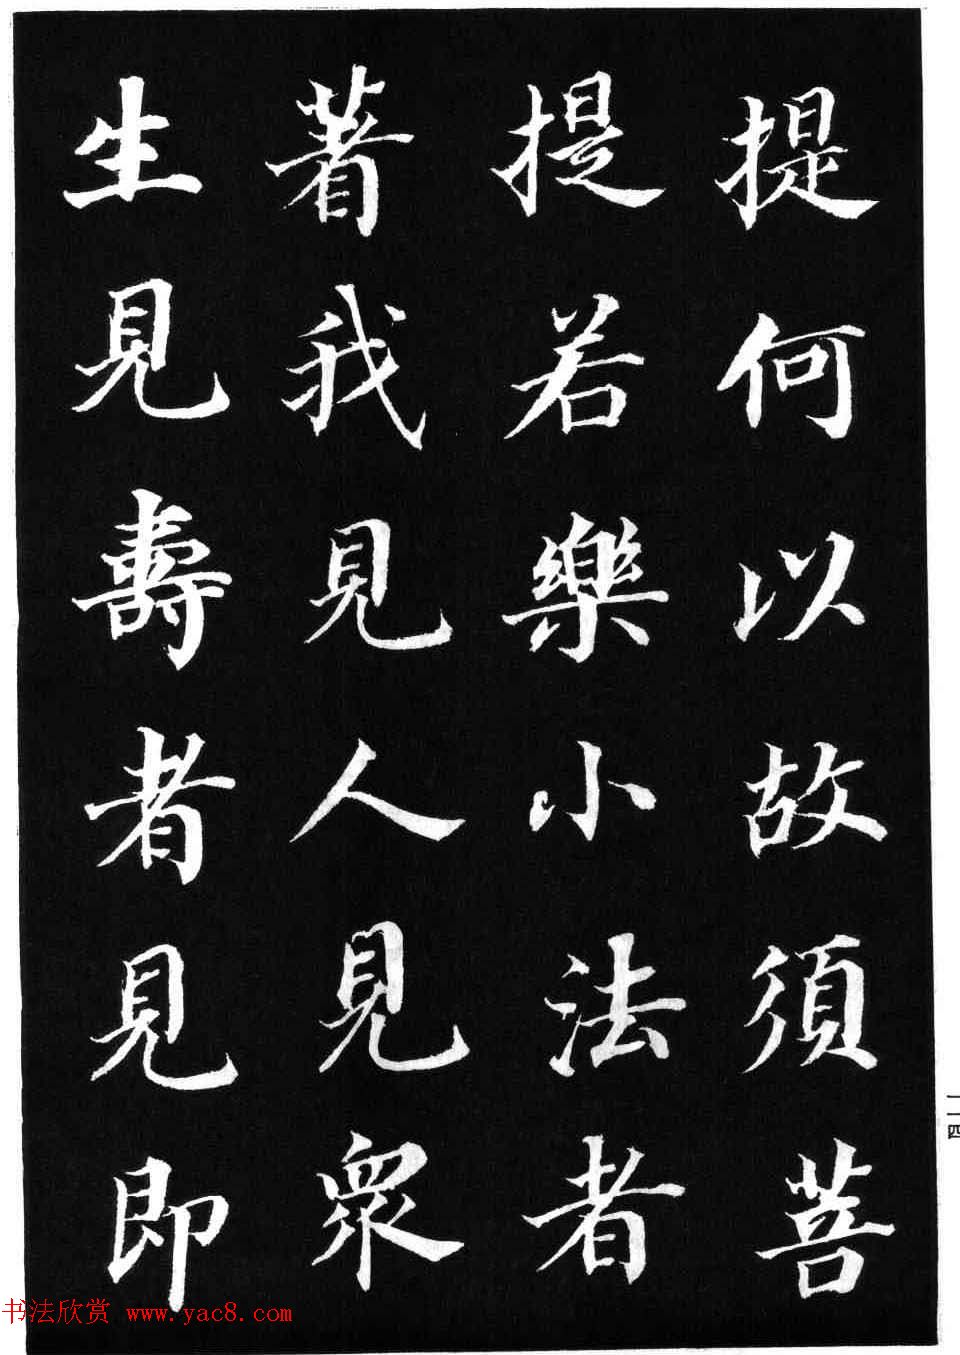 提何以故須菩
提若樂小法者
著我見人見衆
生見壽者見即
一一四
书法欣赏 www.yac8.com